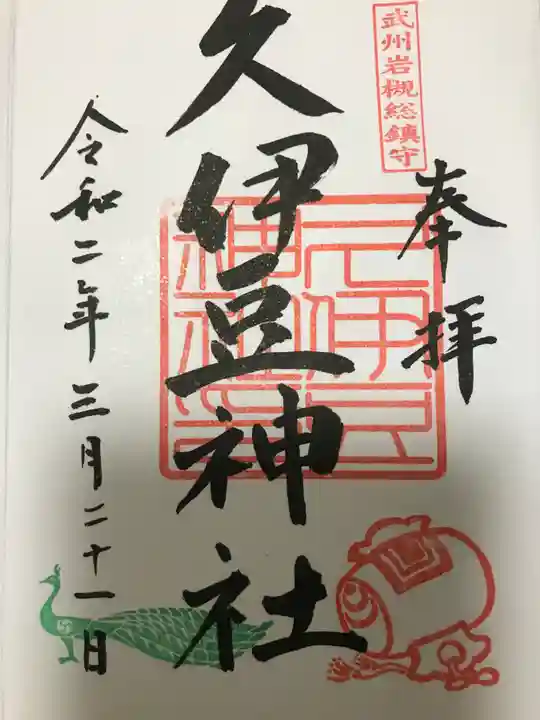 武州岩槻総鎮守
奉拝
久伊豆神社
令和二年三月二十一日